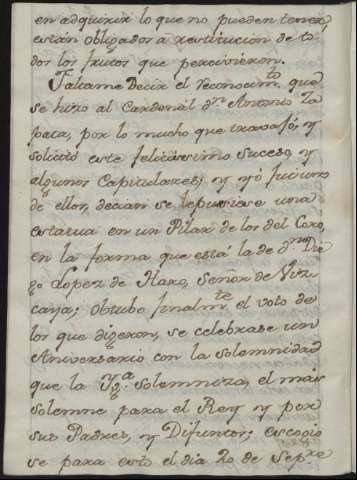 en adquirir lo que no pueden tener,
están obligados a restitucion de to
dos los frutos que percivieron.
Faltame decir el reconocim.to que
se hizo al Cardenal D.n Antonio Za
pata, por lo mucho que travajó, y
solicitó este felicissimo suceso, y
algunos Capitulares; y yó fui uno
de ellos, decian se le pusiese una
estatua en un Pilar de los del Coro,
en la forma que está la de D.n Die
go Lopez de Haro, Señor de Viz
caya; obtubo finalm.te el voto de
los que digeron, se celebrase un
Aniversario con la solemnidad
que la Yg.a solemniza, el mas
solemne para el Rey y por
sus Padres, y Difuntos; escogio
se para esto el dia 20 de Sepre